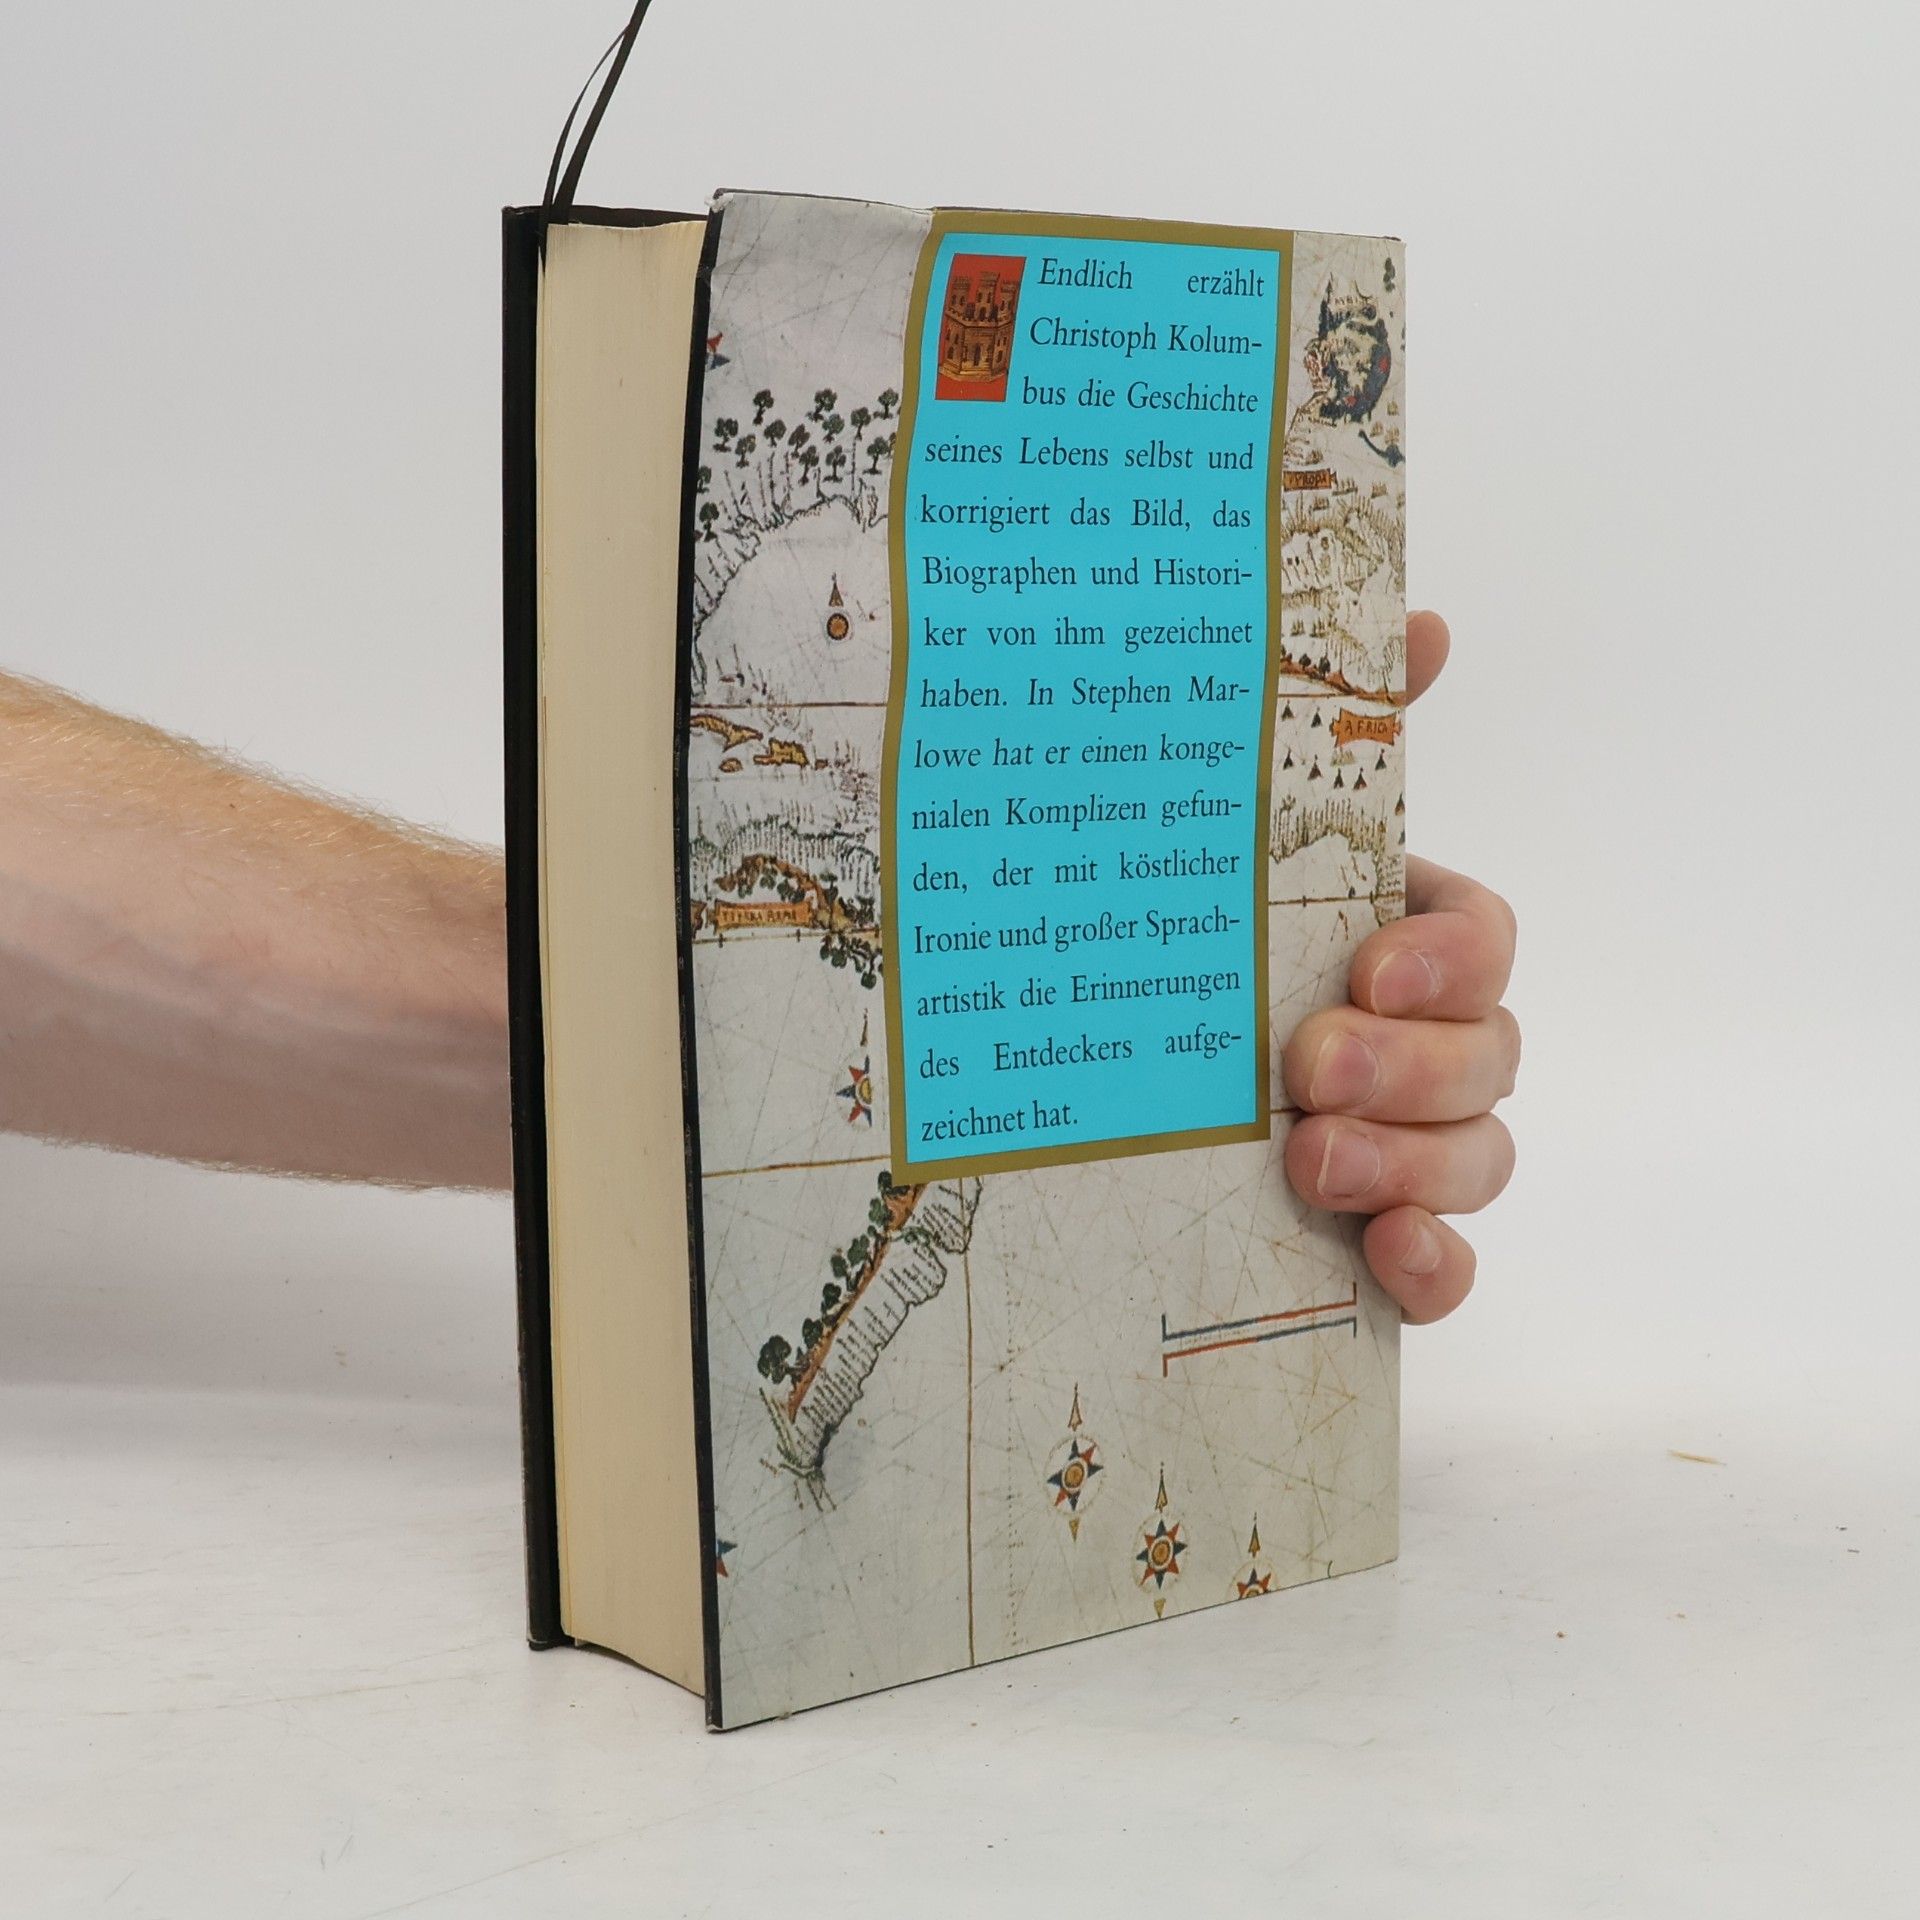 Endlich erzählt
Christoph Kolum-
bus die Geschichte
seines Lebens selbst und
korrigiert das Bild, das
Biographen und Histori-
ker von ihm gezeichnet
haben. In Stephen Mar-
lowe hat er einen konge-
nialen Komplizen gefun-
den, der mit köstlicher
Ironie und großer Sprach-
artistik die Erinnerungen
des Entdeckers aufge-
zeichnet hat.
AFRICA